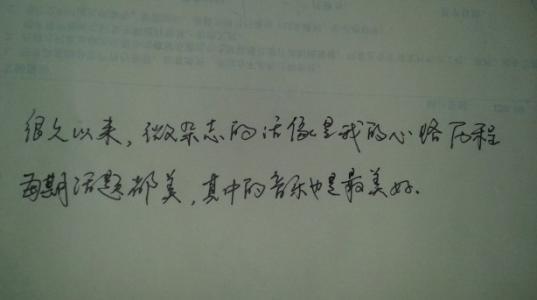 很久以来，微杂志的话像是我的心路历程
每期话题都美，其中的音乐也是最美好.